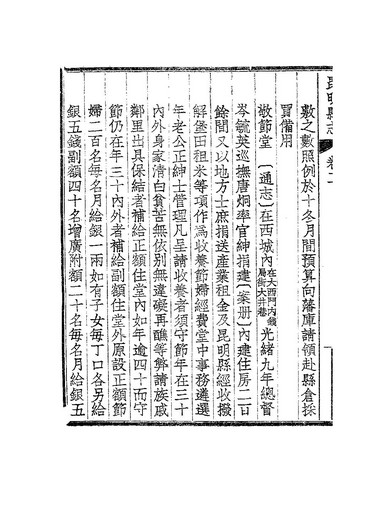 昆明縣志 卷二
敷之數照例於十冬月間預算向藩庫請領赴縣倉採
買備用
敬節堂 〔通志〕在西城內在大西門內錢局街大井巷光緒九年總督
岑毓英巡撫唐炯率官紳捐建〔案册〕內建住房二百
餘間又以地方士庶捐送產業租金及昆明縣經收撥
解堡田租米等項作爲收養節婦經費堂中事務遴選
年老公正紳士管理凡呈請收養者須守節年在三十
內外身家清白貧苦無依別無違礙再醮等弊請族戚
鄰里出具保結者補給正額住堂內如年逾四十而守
節仍在年三十內外者補給副額住堂外原設正額節
婦二百名每名月給銀一兩如有子女每丁口各另給
銀五錢副額四十名增廣附額二十名每名月給銀五